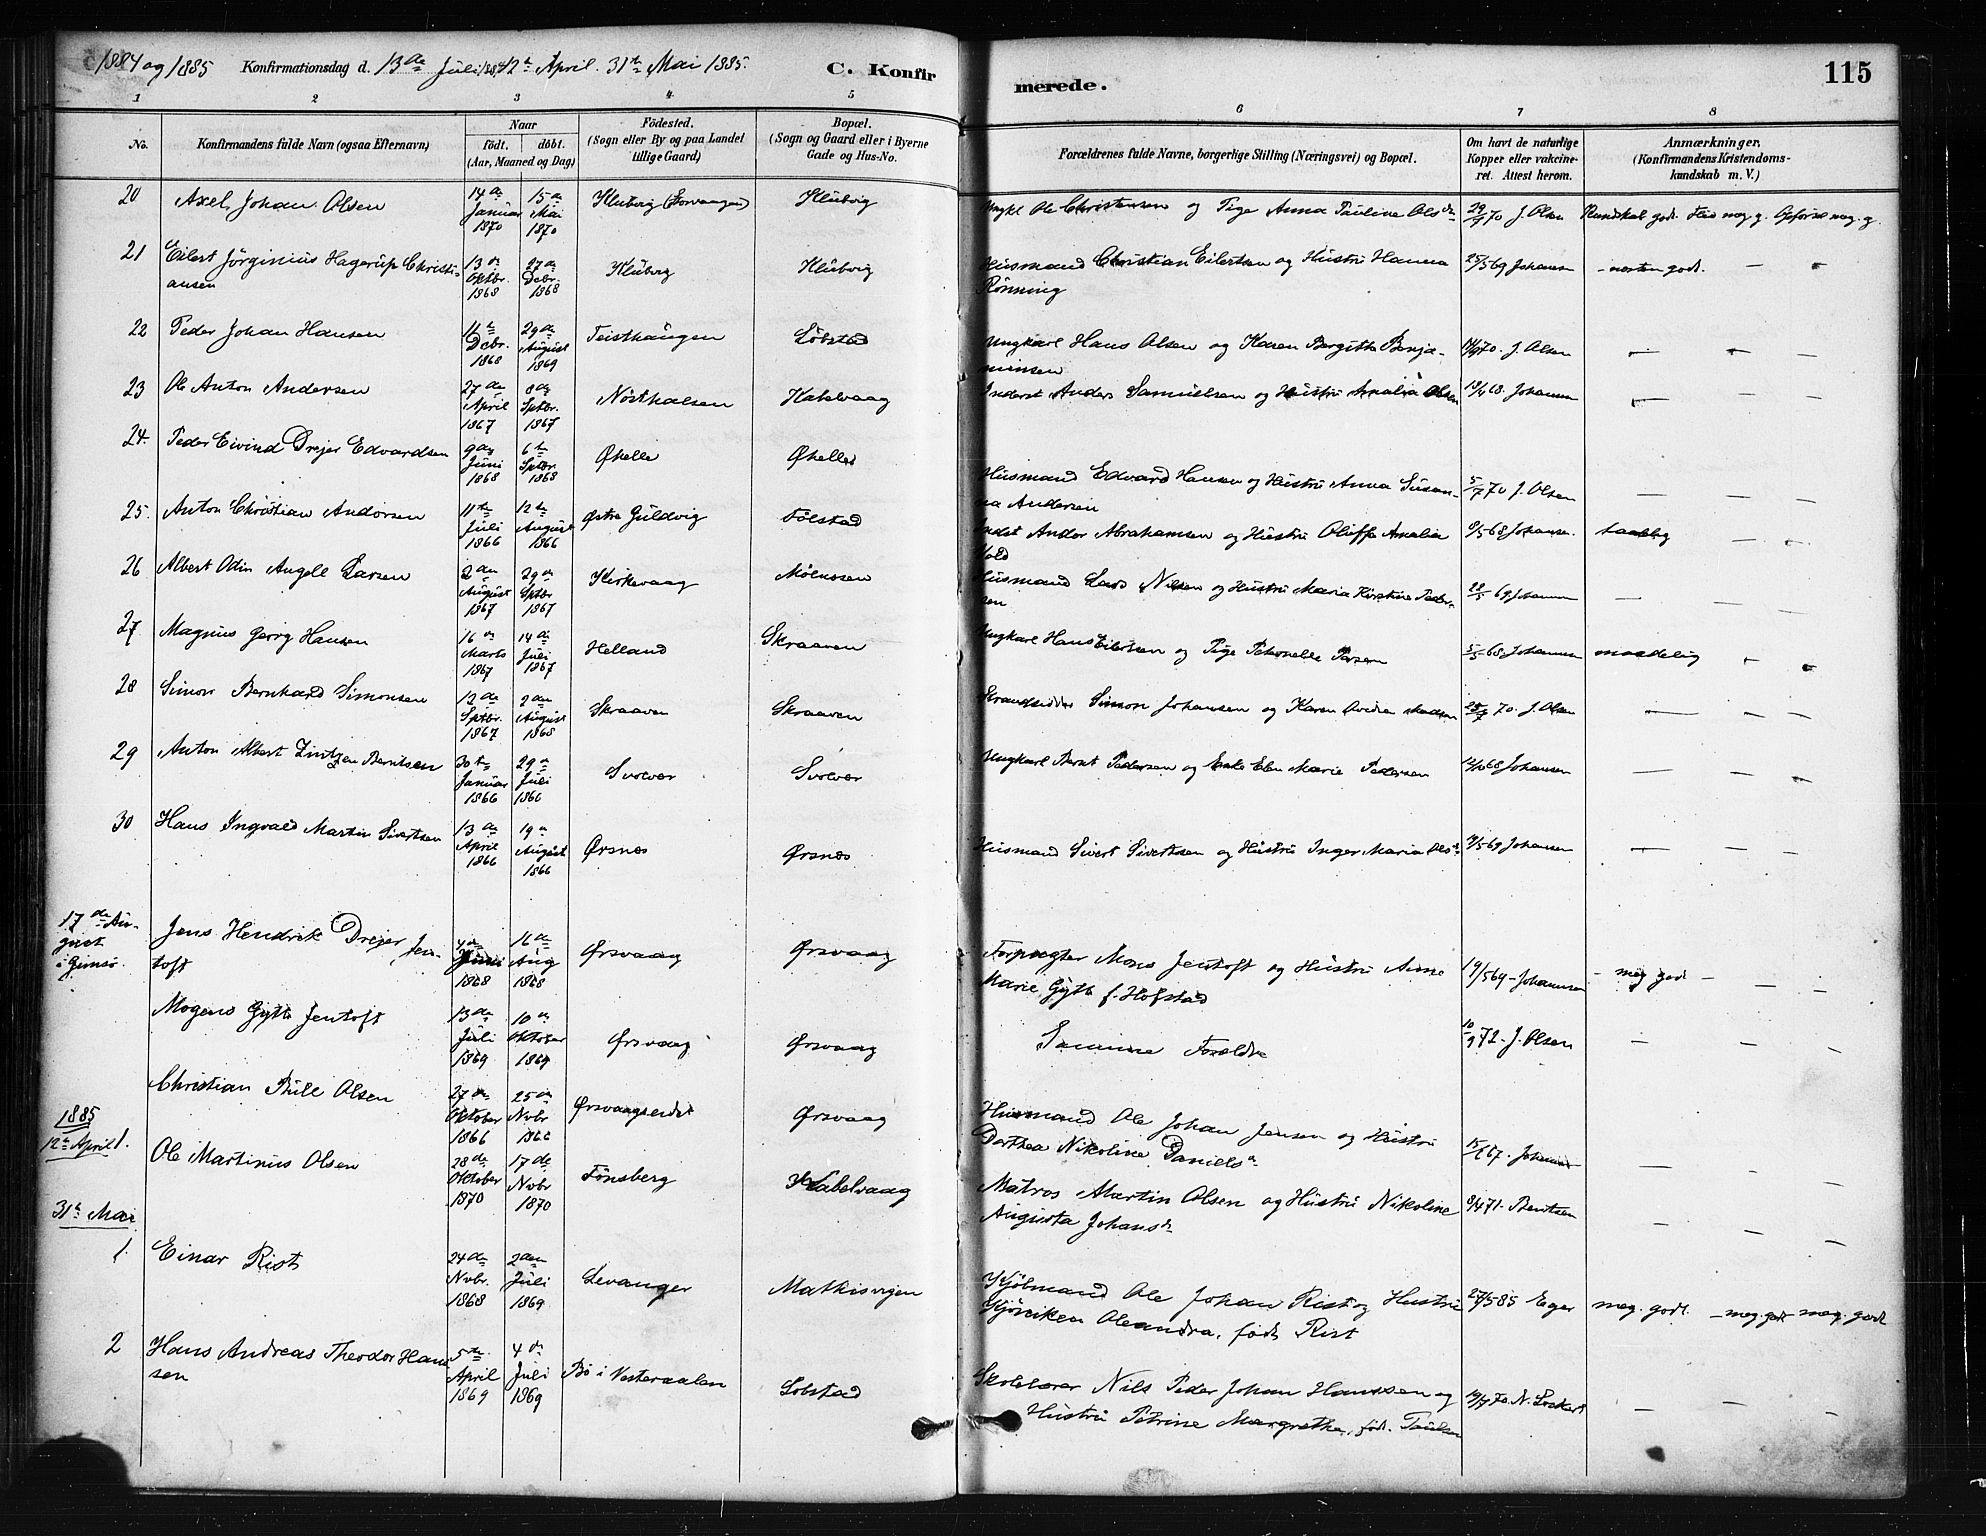 1884 og 1885 Konfirmationsdag d. 13de Juli 1884 12te April. 31te Mai 1885. C. Konfirmerede. 115
1 2 3 4 5 6 7 8
No. Konfirmandens fulde Navn (ogsaa Efternavn) Naar født. døbt. (Aar, Maaned og Dag) Fødested. (Sogn eller By og paa Landet tillige Gaard) Bopæl. (Sogn og Gaard eller i Byerne Gade og Hus-No. Forældrenes fulde Navne, borgerlige Stilling (Næringsvei) og Bopæl. Om havt de naturlige Kopper eller vakcineret. Attest herom. Anmærkninger. (Konfirmandens Kristendomskundskab m. V.)
20 Axel Johan Olsen 14de Januar 1870 15de Mai 1870 Klubvig Klubvig Ungkl Ole Christensen og Pige Anna Pauline Olsdr 70 J. Olsen Kundskab godt. Flid meg g. Opførsel meg. g.
21 Eilert Jørginius Hagerup Christiansen 13de Oktbr. 1868 27de Debr. 1868 Klubvig Klubvig Husmand Christian Eilertsen og Hustru Hanna Rønning 25/5 69 Johansen næsten godt. — —
22 Peder Johan Hansen 11te Debr. 1868 29de August 1869 Teisthaugen Løbstad Ungkarl Hans Olsen og Karen Bergitte Benjaminsen 70. J. Olsen — — —
23 Ole Anton Andersen 27de April 1867 8de Sptbr. 1867 Nøsthalsen Kabelvaag Inderst Anders Samuelsen og Hustru Amalia Olsen 68. Johansen — — —
24. Peder Eivind Drejer Edvardsen 9de Juni 1868 6te Sptbr. 1868 Øhelle Øhelle Husmand Edvard Hansen og Hustru Anna Susanna Andersen 5/7 70 J. Olsen — — —
25. Anton Christian Andorsen 11te Juli 1866 12te August 1866 Østre Guldvig Følstad Indst Andor Abrahamsen og Hustru Oluffa Amalia Vold 68 Johansen. taalelig — —
26 Albert Odin Angell Larsen 2den August 1867 29de Sptbr 1867 Kirkevaag Mølnosen Husmand Lars Nilsen og Hustru Maria Kirstine Pedersen 28/5 69 Johansen — — —
27 Magnus Georg Hansen 16de Marts 1867 14de Juli 1867 Helland Skraaven Ungkarl Hans Eilertsen og Pige Petronelle 5/5 68. Johansen maadelig — —
28 Simon Bernhard Simonsen 12de Sptbr. 1867 2den August 1868 Skraaven Skraaven Strandsidder Simon Johansen og Karen 70. J. Olsen — — —
29 Anton Albert Zintzen Berntsen 30te Januar 1866 29de Juli 1866 Svolvær Svolvær Ungkarl Bernt Pedersen og Enke Elen Marie Pedersen 68 Johansen — — —
30 Hans Ingvald Martin Sivertsen 13de April 1866 19de August 1866 Ørsnes Ørsnes Husmand Sivert Sivertsen og Hustru Inger Maria Olsdr 69 Johansen — — —
17de August i Gimsø. Jens Hendrik Drejer Jentoft 4de Juni 1868 16de Aug 1868 Ørsvaag Ørsvaag Forpagter Mons Jentoft og Hustru Anne Marie Gytte f. Hofstad 19/5 69 - Johannsen - meg godt - — —
Mogens Gytte Jentoft 13de Juli 1869 10de Oktober 1869 Ørsvaag Ørsvaag Samme Forældre 10/9 72 - J. Olsen — — —
Christian Bull Olsen 27de Oktober 1866 25de Nvbr 1866 Ørsvaagseidet Ørsvaag Husmand Ole Johan Jensen og Hustru Dorthea Nikoline Danielsdr 67. Johansen — — —
1885 12te April 1. Ole Martinus Olsen 28de Oktober 1870 17de Nvbr 1870 Tønsberg Kabelvaag Matros Martin Olsen og Hustru Nikoline Augusta Johansdr 8/4 71. Berntsen — — —
31te Mai
1. Einar Rist 24de Nvbr. 1868 2den Juli 1869 Levanger Matkisvigen Kjøbmand Ole Johan Rist og Hustru Oleandra, født Rist 27/5 85 Eger meg. godt. - meg. godt meg. godt
2 Hans Andreas Theodor Hanssen 5te April 1869 4de Juli 1869 Bø i Vesteraalen Lobstad Skolelærer Nils Peder Johan Hanssen og Hustru Petrine Margrethe, født. Paulsen 70. N. — — —